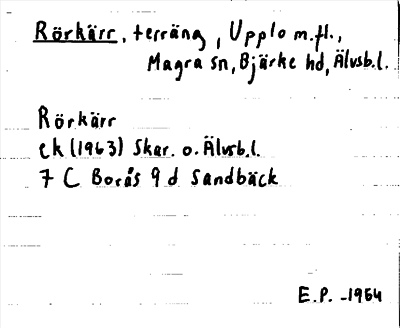 Rörkärr, terräng, Upplo m.fl.,
Magra sn, Bjärke hd, Älvsb.l.
Rörkärr
ek (1963) Skar. o. Älvsb.l.
7 C Borås 9 d Sandbäck
E.P. -1964